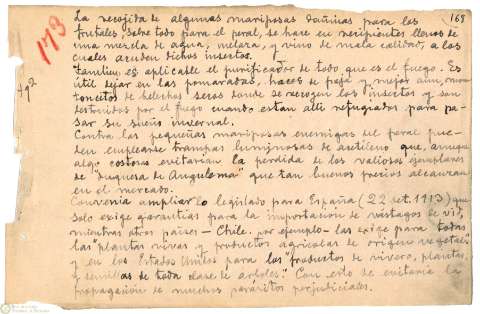 173
168
La recojida de algunas mariposas dañinas para los
frutales, sobre todo para el peral, se hace en recipientes llenos de
una mezcla de agua, melaza, y vino de mala calidad, a los
cuales acuden dichos insectos.
Tambien es aplicable el purificador de todo que es el fuego. Es
útil dejar en las pomaradas, haces de paja y mejor aun, mon
toncitos de helechos secos donde se recogen los insectos y son
destruidos por el fuego cuando estan alli refugiados para pa-
sar su sueño invernal.
Contra las pequeñas mariposas enemigas del peral pue-
den emplearse trampas luminosas de acetileno que, aunque
algo costosas evitarían la perdida de los valiosos ejemplares
de "duquesa de Angulema" que tan buenos precios alcanzan
en el mercado.
Convenia ampliar lo legislado para España (22 set. 1913) que
solo exige garantías para la importacion de vástagos de vid,
mientras otros paises — Chile, por ejemplo — las exige para todas
las "plantas vivas y productos agrícolas de origen vegetal"
y en los Estados Unidos para los "productos de vivero, plantas,
y semillas de toda clase de arboles." Con esto se evitaría la
propagación de muchos parásitos perjudiciales.